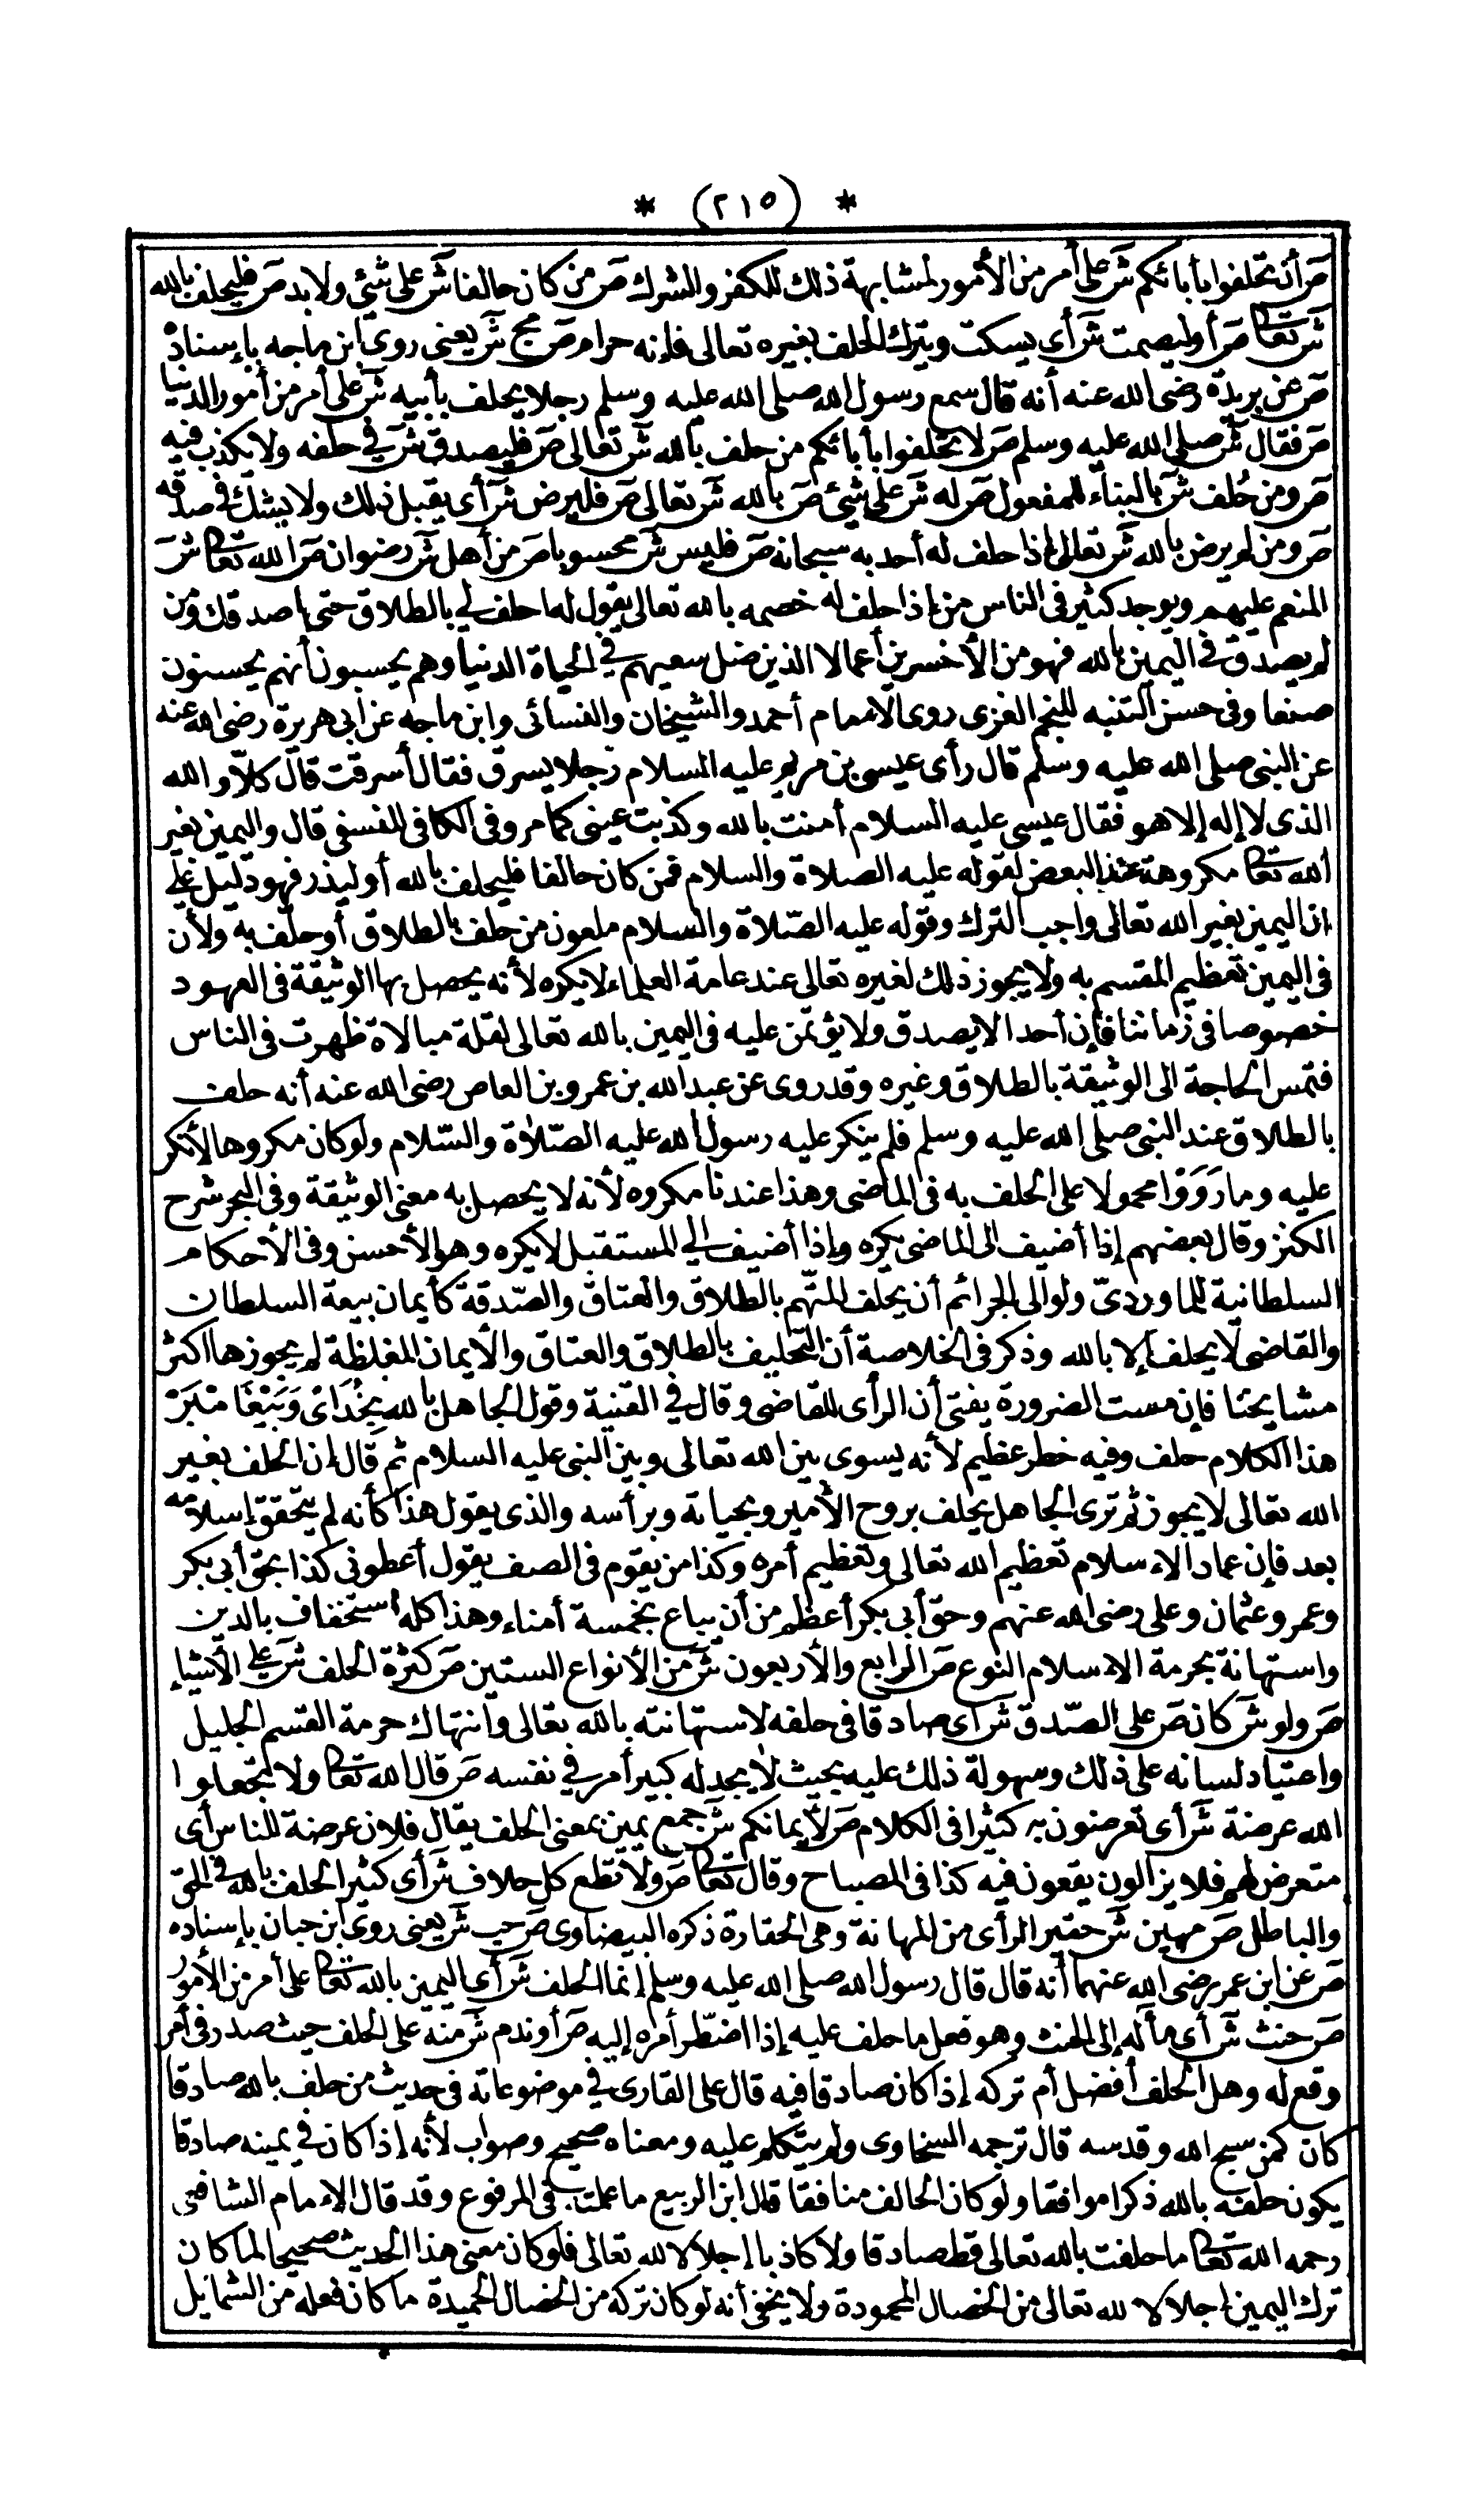 * (٢١٥) *
صَ أن تحلفوا بأبائكم شَ على أمر من الأمور لمشابهة ذلك للكفر والشرك صَ من كان حالفا شَ على شئ ولا بد صَ فليحلف بالله
شَ تعالى صَ أو ليصمت شَ أى يسكت ويترك الحلف بغيره تعالى فإنه حرام صَ مج شَ يعنى روى ابن ماجه بإسناده
صَ عن بريدة رضى الله عنه أنه قال سمع رسول الله صلى الله عليه وسلم رجلا يحلف بأبيه شَ على أمر من أمور الدنيا
صَ فقال شَ صلى الله عليه وسلم صَ لا تحلفوا بأبائكم من حلف بالله شَ تعالى صَ فليصدق شَ في حلفه ولا يكذب فيه
صَ ومن حُلف شَ بالبناء للمفعول صَ له شَ على شئ صَ بالله شَ تعالى صَ فليرض شَ أى يقبل ذلك ولا يشك فى صدقه
صَ ومن لم يرض بالله شَ تعالى إذا حلف له أحد به سبحانه صَ فليس شَ محسوبا صَ من أهل شَ رضوان صَ الله تعالى شَ
المنعم عليهم ويوجد كثير فى الناس من إذا حلف له خصمه بالله تعالى يقول له احلف لي بالطلاق حتى أصدقك ومن
لم يصدق في اليمين بالله فهو من الأخسرين أعمالا الذين ضل سعيهم في الحياة الدنيا وهم يحسبون أنهم يحسنون
صنعا وفى حسن التنبه للنجم الغزى روى الإمام أحمد والشيخان والنسائى وابن ماجه عن ابى هريرة رضى الله عنه
عن النبى صلى الله عليه وسلم قال رأى عيسى بن مريم عليه السلام رجلا يسرق فقال أسرقت قال كلا والله
الذى لا إله إلا هو فقال عيسى عليه السلام أمنت بالله وكذبت عينى كما مر وفى الكافى للنسفى قال واليمين بغير
الله تعالى مكروهة عند البعض لقوله عليه الصلاة والسلام فمن كان حالفا فليحلف بالله أو ليذر فهو دليل على
ان اليمين بغير الله تعالى واجب الترك وقوله عليه الصّلاة والسلام ملعون من حلف بالطلاق أو حلف به ولأن
فى اليمين تعظيم المقسم به ولا يجوز ذلك لغيره تعالى عند عامة العلماء لا يكره لأنه يحصل بها الوثيقة فى العهود
خصوصا فى زماننا فإن أحدا لا يصدق ولا يؤتمن عليه فى اليمين بالله تعالى لقلة مبالاة ظهرت فى الناس
فتمس الحاجة الى الوثيقة بالطلاق وغيره وقد روى عن عبد الله بن عمرو بن العاص رضى الله عنه أنه حلف
بالطلاق عند النبى صلى الله عليه وسلم فلم ينكر عليه رسول الله عليه الصّلاة والسّلام ولو كان مكروها لأنكر
عليه وما رَوَوْا محمولا على الحلف به فى الماضى وهذا عندنا مكروه لأنه لا يحصل به معنى الوثيقة وفى البحر شرح
الكنز وقال بعضهم إذا أضيف الى الماضى يكره وإذا أضيف إلي المستقبل لا يكره وهو الأحسن وفى الأحكام
السلطانية للماوردىّ ولوالى الجرائم أن يحلف المتّهم بالطلاق والعتاق والصّدقة كأيمان بيعة السلطان
والقاضى لا يحلف إلا بالله وذكر فى الخلاصة أن التّحليف بالطلاق والعتاق والأيمان المغلظة لم يجوزها اكثر
مشايخنا فإن مست الضرورة يفتى أن الرأى للقاضى وقال في القنية وقول الجاهل بالله بِخُدَاىْ وَبَيْغَامْبَرْ
هذا الكلام حلف وفيه خطر عظيم لأنه يسوى بين الله تعالى وبين النبى عليه السلام ثم قال إن الحلف بغير
الله تعالى لا يجوز ثم ترى الجاهل يحلف بروح الأمير وبحياته وبرأسه والذى يقول هذا كأنه لم يتحقق إسلامه
بعد فإن عماد الإسلام تعظيم الله تعالى وتعظيم أمره وكذا من يقوم فى الصف يقول أعطونى كذا بحق أبى بكر
وعمر وعثمان وعلى رضى الله عنهم وحق أبى بكر أعظم من أن يباع بخمسة أمناء وهذا كله أستخفاف بالدين
واستهانة بحرمة الإسلام النوع صَ الرابع والأربعون شَ من الأنواع الستين صَ كثرة الحلف شَ على الأشياء
صَ ولو شَ كان صَ على الصّدق شَ أى صادقا فى حلفه لاستهانته بالله تعالى وانتهاك حرمة القسم الجليل
واعتياد لسانه على ذلك وسهولة ذلك عليه بحيث لا يجد له كبير أمر في نفسه صَ قال الله تعالى ولا تجعلوا
الله عرضة شَ أى تعرضون به كثيرا فى الكلام صَ لأيمانكم شَ جمع يمين بمعنى الحلف يقال فلان عرضة للناس أى
متعرض لهم فلا يزالون يقعون فيه كذا فى المصباح وقال تعالى صَ ولا تطع كل حلاف شَ أى كثير الحلف بالله في الحق
والباطل صَ مهين شَ حقير الرأى من المهانة وهى الحقارة ذكره البيضاوى صَ حب شَ يعنى روى ابن حبان بإسناده
صَ عن ابن عمر رضى الله عنهما أنه قال قال رسول الله صلى الله عليه وسلم إنما الحلف شَ أى اليمين بالله تعالى على أمر من الأمور
صَ حنث شَ أى مأله إلى الحنث وهو فعل ما حلف عليه إذا اضطر أمره إليه صَ أو ندم شَ منه على الحلف حيث صدر فى أمر
وقع له وهل الحلف أفضل أم تركه إذا كان صادقا فيه قال على القارى في موضوعاته فى حديث من حلف بالله صادقا
كان كمن سبح الله وقدسه قال ترجمه السخاوى ولم يتكلم عليه ومعناه صحيح وصواب لأنه إذا كان في يمينه صادقا
يكون حلفه بالله ذكرا موافقا ولو كان الحالف منافقا قال ابن الربيع ما علمته في المرفوع وقد قال الإمام الشافعى
رحمه الله تعالى ما حلفت بالله تعالى قط صادقا ولا كاذبا إجلالا لله تعالى فلو كان معنى هذا الحديث صحيحا لما كان
ترك اليمين إجلالا لله تعالى من الخصال المحمودة ولا يخفى أنه لو كان تركه من الخصال الحميدة ما كان فعله من الشمايل